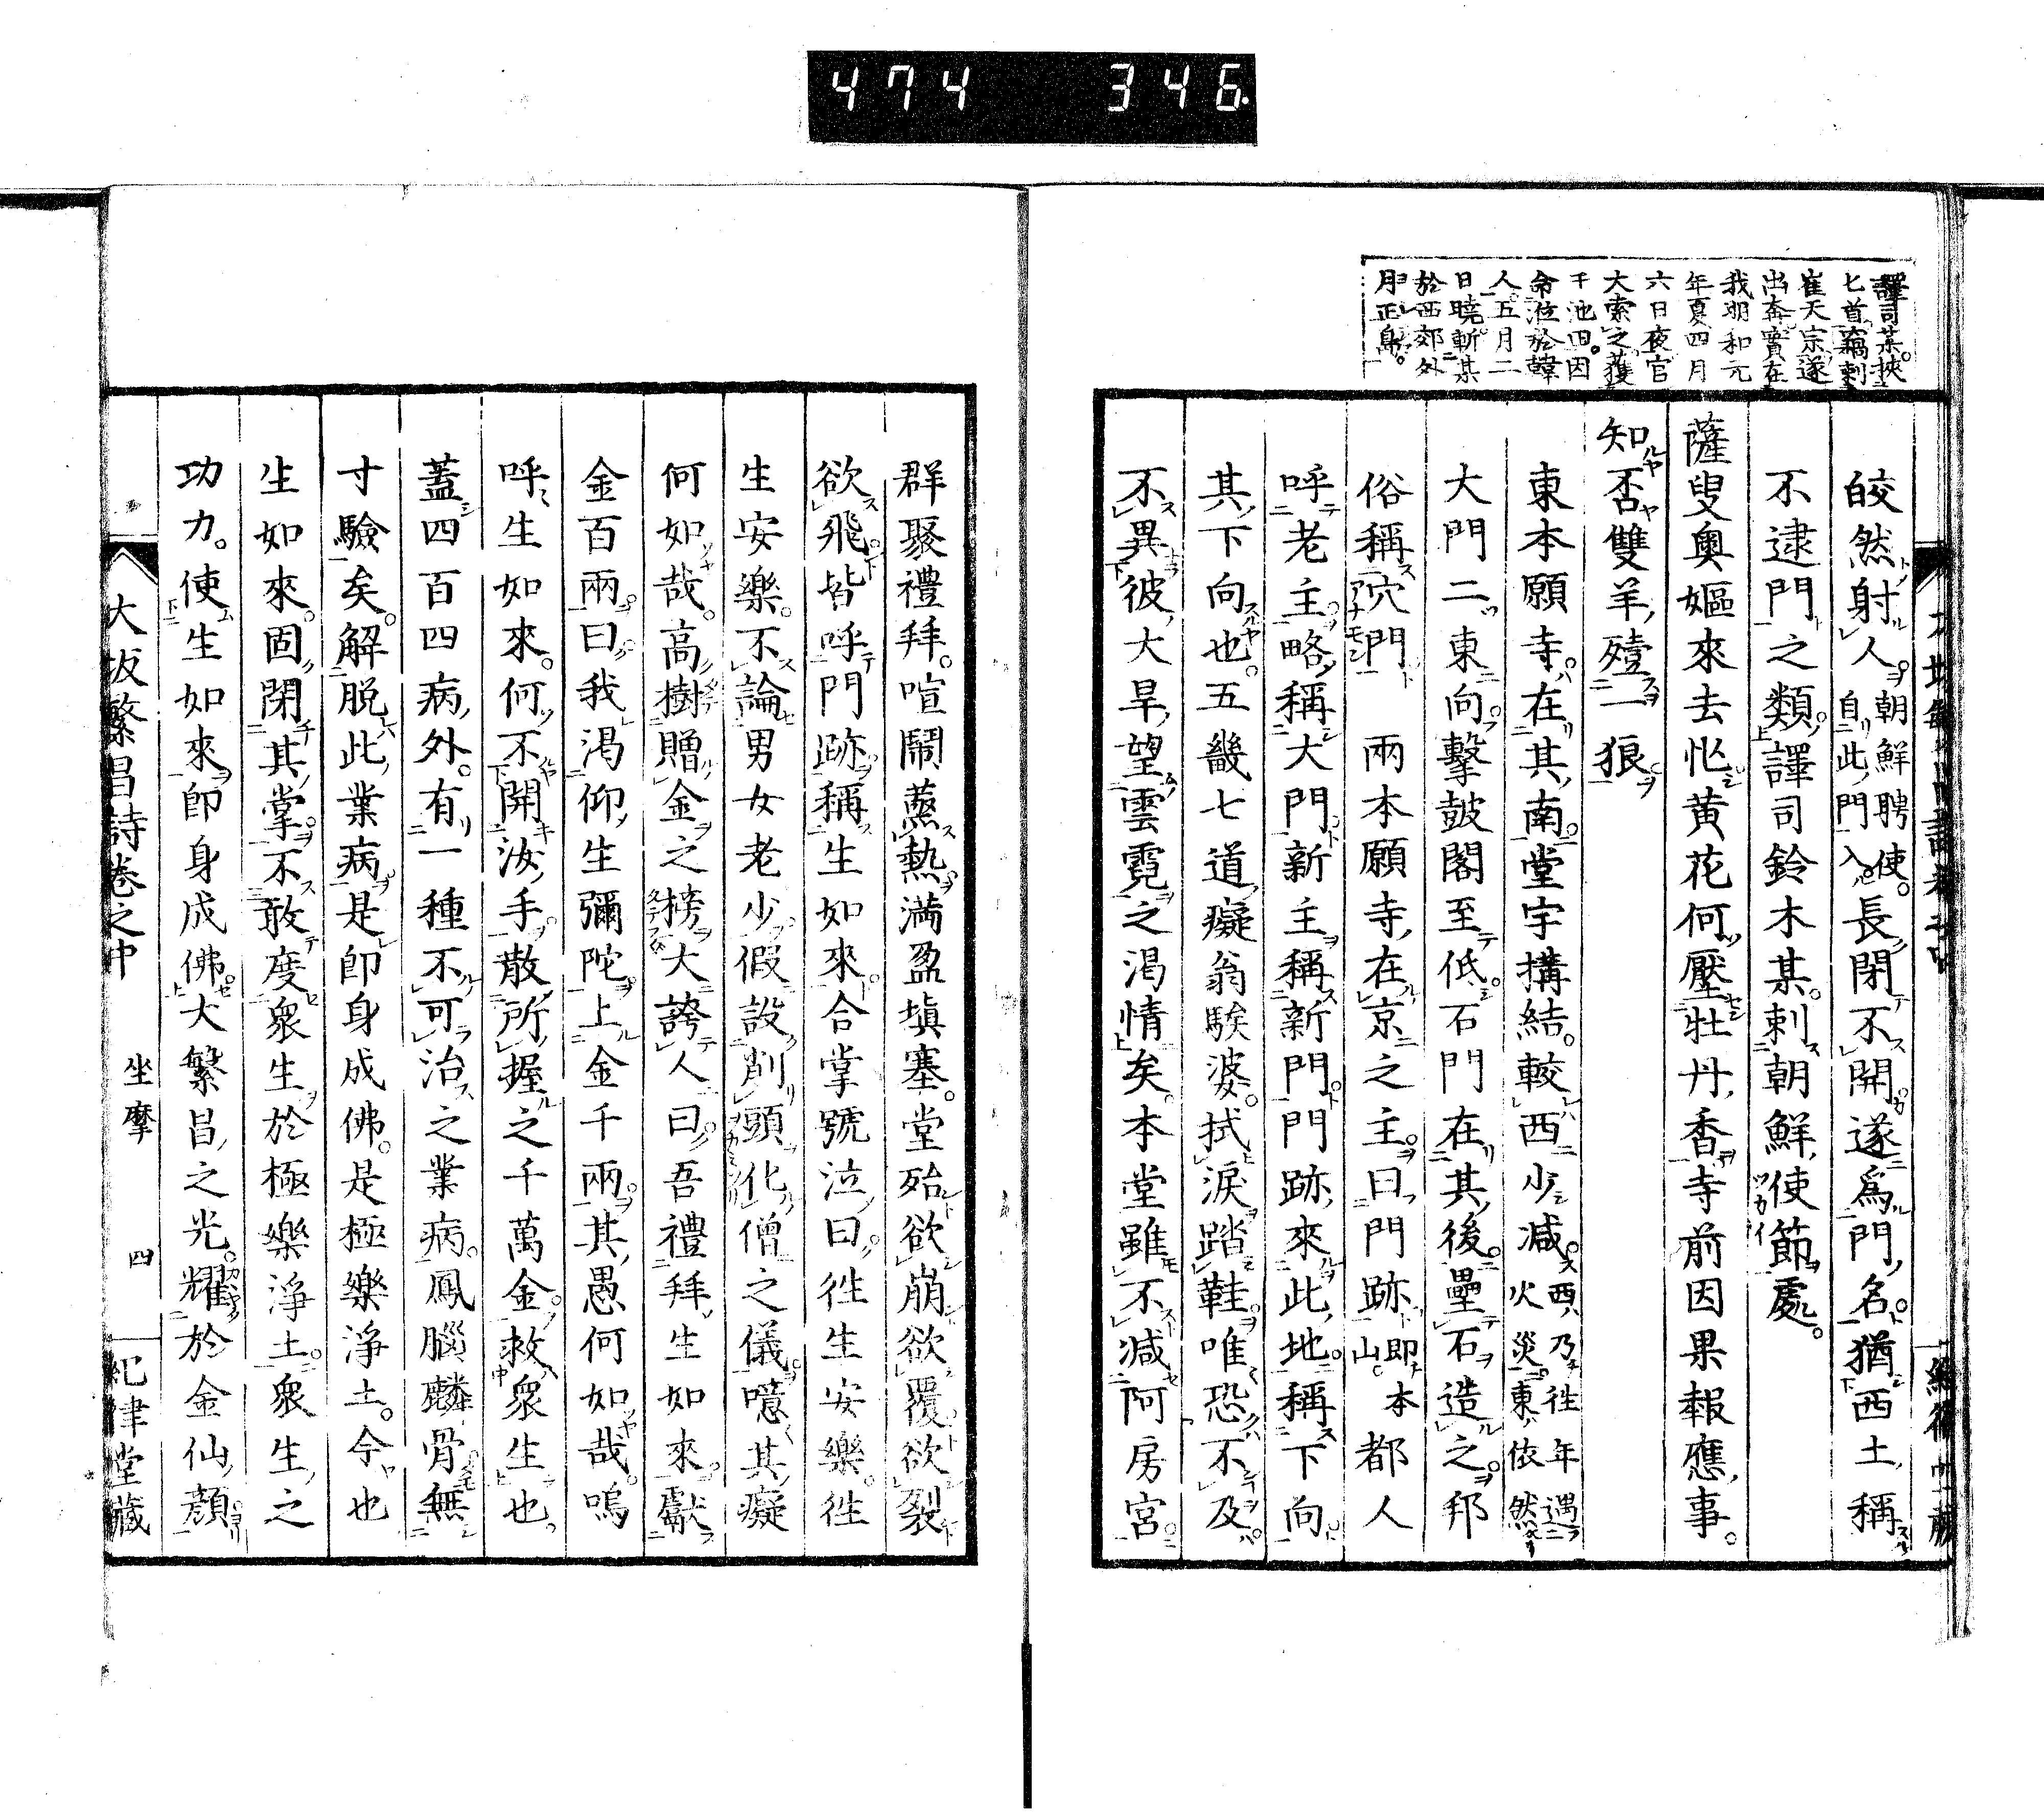 474 346
譯司某挾
匕首竊刺
崔天宗遂
出奔實在
我明和元
年夏四月
六日夜官
大索之獲
于池田因
命涖於韓
人五月二
日曉斬某
於西郊外
月正島。
皎然射人朝鮮聘使。自此門入長閉不開遂爲門名猶西土稱
不逮門之類譯司鈴木某刺朝鮮使節處。
薩叟奧嫗來去忙黄花何壓牡丹香寺前因果報應事。
知否雙羊殪一狼
東本願寺在其南堂宇搆結較西少減西乃往年遇火災東依然
大門二東向擊鼓閣至低石門在其後壘石造之邦
俗稱穴門 兩本願寺在京之主曰門跡即山 本都人
呼老主略稱大門新主稱新門門跡來此地稱下向
其下向也五畿七道癡翁騃婆拭淚踏鞋唯恐不及
不異彼大旱望雲霓之渴情矣本堂雖不減阿房宮
群聚禮拜喧鬧蒸熱滿盈塡塞堂殆欲崩欲覆欲裂
欲飛皆呼門跡稱生如來合掌號泣曰往生安樂往
生安樂不論男女老少假設削頭化僧之儀噫其癡
何如哉高樹贈金之榜大誇人曰吾禮拜生如來獻
金百兩曰我渴仰生彌陀上金千兩其愚何如哉嗚
呼生如來何不開汝手散所握之千萬金救衆生也
蓋四百四病外有一種不可治之業病鳳腦麟骨無
寸驗矣解脱此業病是即身成佛是極樂淨土今也
生如來固閉其掌不敢度衆生於極樂淨土衆生之
功力使生如來即身成佛大繁昌之光耀於金仙顔
大坂繁昌詩卷之中
坐摩
四
祀津堂藏